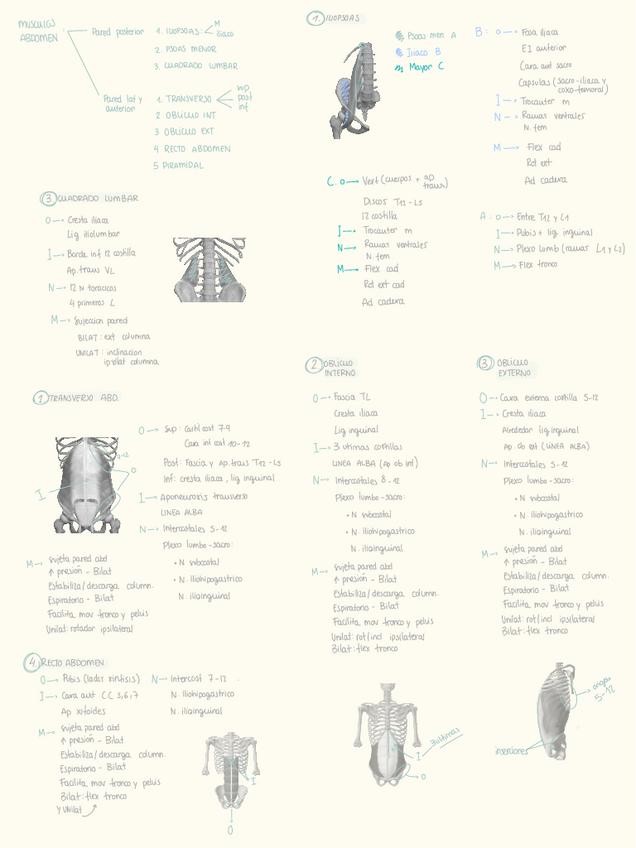 MÚSCULOS
ABDOMEN
Pared posterior
1. ILIOPSOAS
M
iliaco
2. PSOAS MENOR
3. CUADRADO LUMBAR
Pared lat y
anterior
1. TRANSVERSO
sup
post
inf
2 OBLICUO INT
3 OBLICUO EXT
4 RECTO ABDOMEN
5 PIRAMIDAL
1. ILIOPSOAS
Psoas men A
Iliaco B
Mayor C
B: O → Fosa iliaca
EI anterior
Cara ant sacro
Capsulas (sacro-iliaca y
coxo-femoral)
I → Trocanter m
N → Ramas ventrales
N. fem
M → Flex cad
Rot ext
Ad cadera
C. O → Vert (cuerpos + ap
trans)
Discos T12-L5
12 costilla
I → Trocanter m
N → Ramas ventrales
N. fem
M → Flex cad
Rot ext cad
Ad cadera
A: O → Entre T12 y L1
I → Pubis + lig. inguinal
N → Plexo lumb (ramas L1 y L2)
M → Flex tronco
3 CUADRADO LUMBAR
O → Cresta iliaca
Lig iliolumbar
I → Borde inf 12 costilla
Ap. trans VL
N → 12 N toracicos
4 primeros L
M → Sujecion pared
BILAT: ext columna
UNILAT: inclinacion
ipsilat columna
1 TRANSVERSO ABD.
O → Sup: Cartil cost 7-9
Cara int cost 10-12
Post: Fascia y Ap. trans T12-L5
Inf: cresta iliaca, lig inguinal
I → Aponeurosis transverso
LINEA ALBA
N → Intercostales 5-12
Plexo lumbo-sacro:
• N subcostal
• N. iliohipogastrico
N. ilioinguinal
9-12
O
I
M → Sujeta pared abd
↑ presión - Bilat
Estabiliza/descarga column.
Espiratorio - Bilat
Facilita mov tronco y pelvis
Unilat: rotador ipsilateral
2 OBLICUO
INTERNO
O → Fascia TL
Cresta iliaca
Lig inguinal
I → 3 ultimas costillas
LINEA ALBA (Ap ob int)
N → Intercostales 8-12
Plexo lumbo-sacro:
• N subcostal
• N. iliohipogastrico
N. ilioinguinal
M → Sujeta pared abd
↑ presión - Bilat
Estabiliza/descarga column.
Espiratorio - Bilat
Facilita mov tronco y pelvis
Unilat: rot/incl ipsilateral
Bilat: flex tronco
3 OBLICUO
EXTERNO
O → Cara externa costilla 5-12
I → Cresta iliaca
Alrededor lig inguinal
Ap. ob ext (LINEA ALBA)
N → Intercostales 5-12
Plexo lumbo-sacro:
• N subcostal
• N. iliohipogastrico
N. ilioinguinal
M → Sujeta pared abd
↑ presión - Bilat
Estabiliza/descarga column.
Espiratorio - Bilat
Facilita mov tronco y pelvis
Unilat: rot/incl ipsilateral
Bilat: flex tronco
4 RECTO ABDOMEN
O → Pubis (lados sínfisis)
I → Cara ant CC 5,6,7
Ap xifoides
N → Intercost 7-12
N. Iliohipogastrico
N. ilioinguinal
M → Sujeta pared abd
↑ presión - Bilat
Estabiliza/descarga column.
Espiratorio - Bilat
Facilita mov tronco y pelvis
Bilat: flex tronco
y unilat
I
O
3 ultimas
I
O
origen
5-12
inserciones